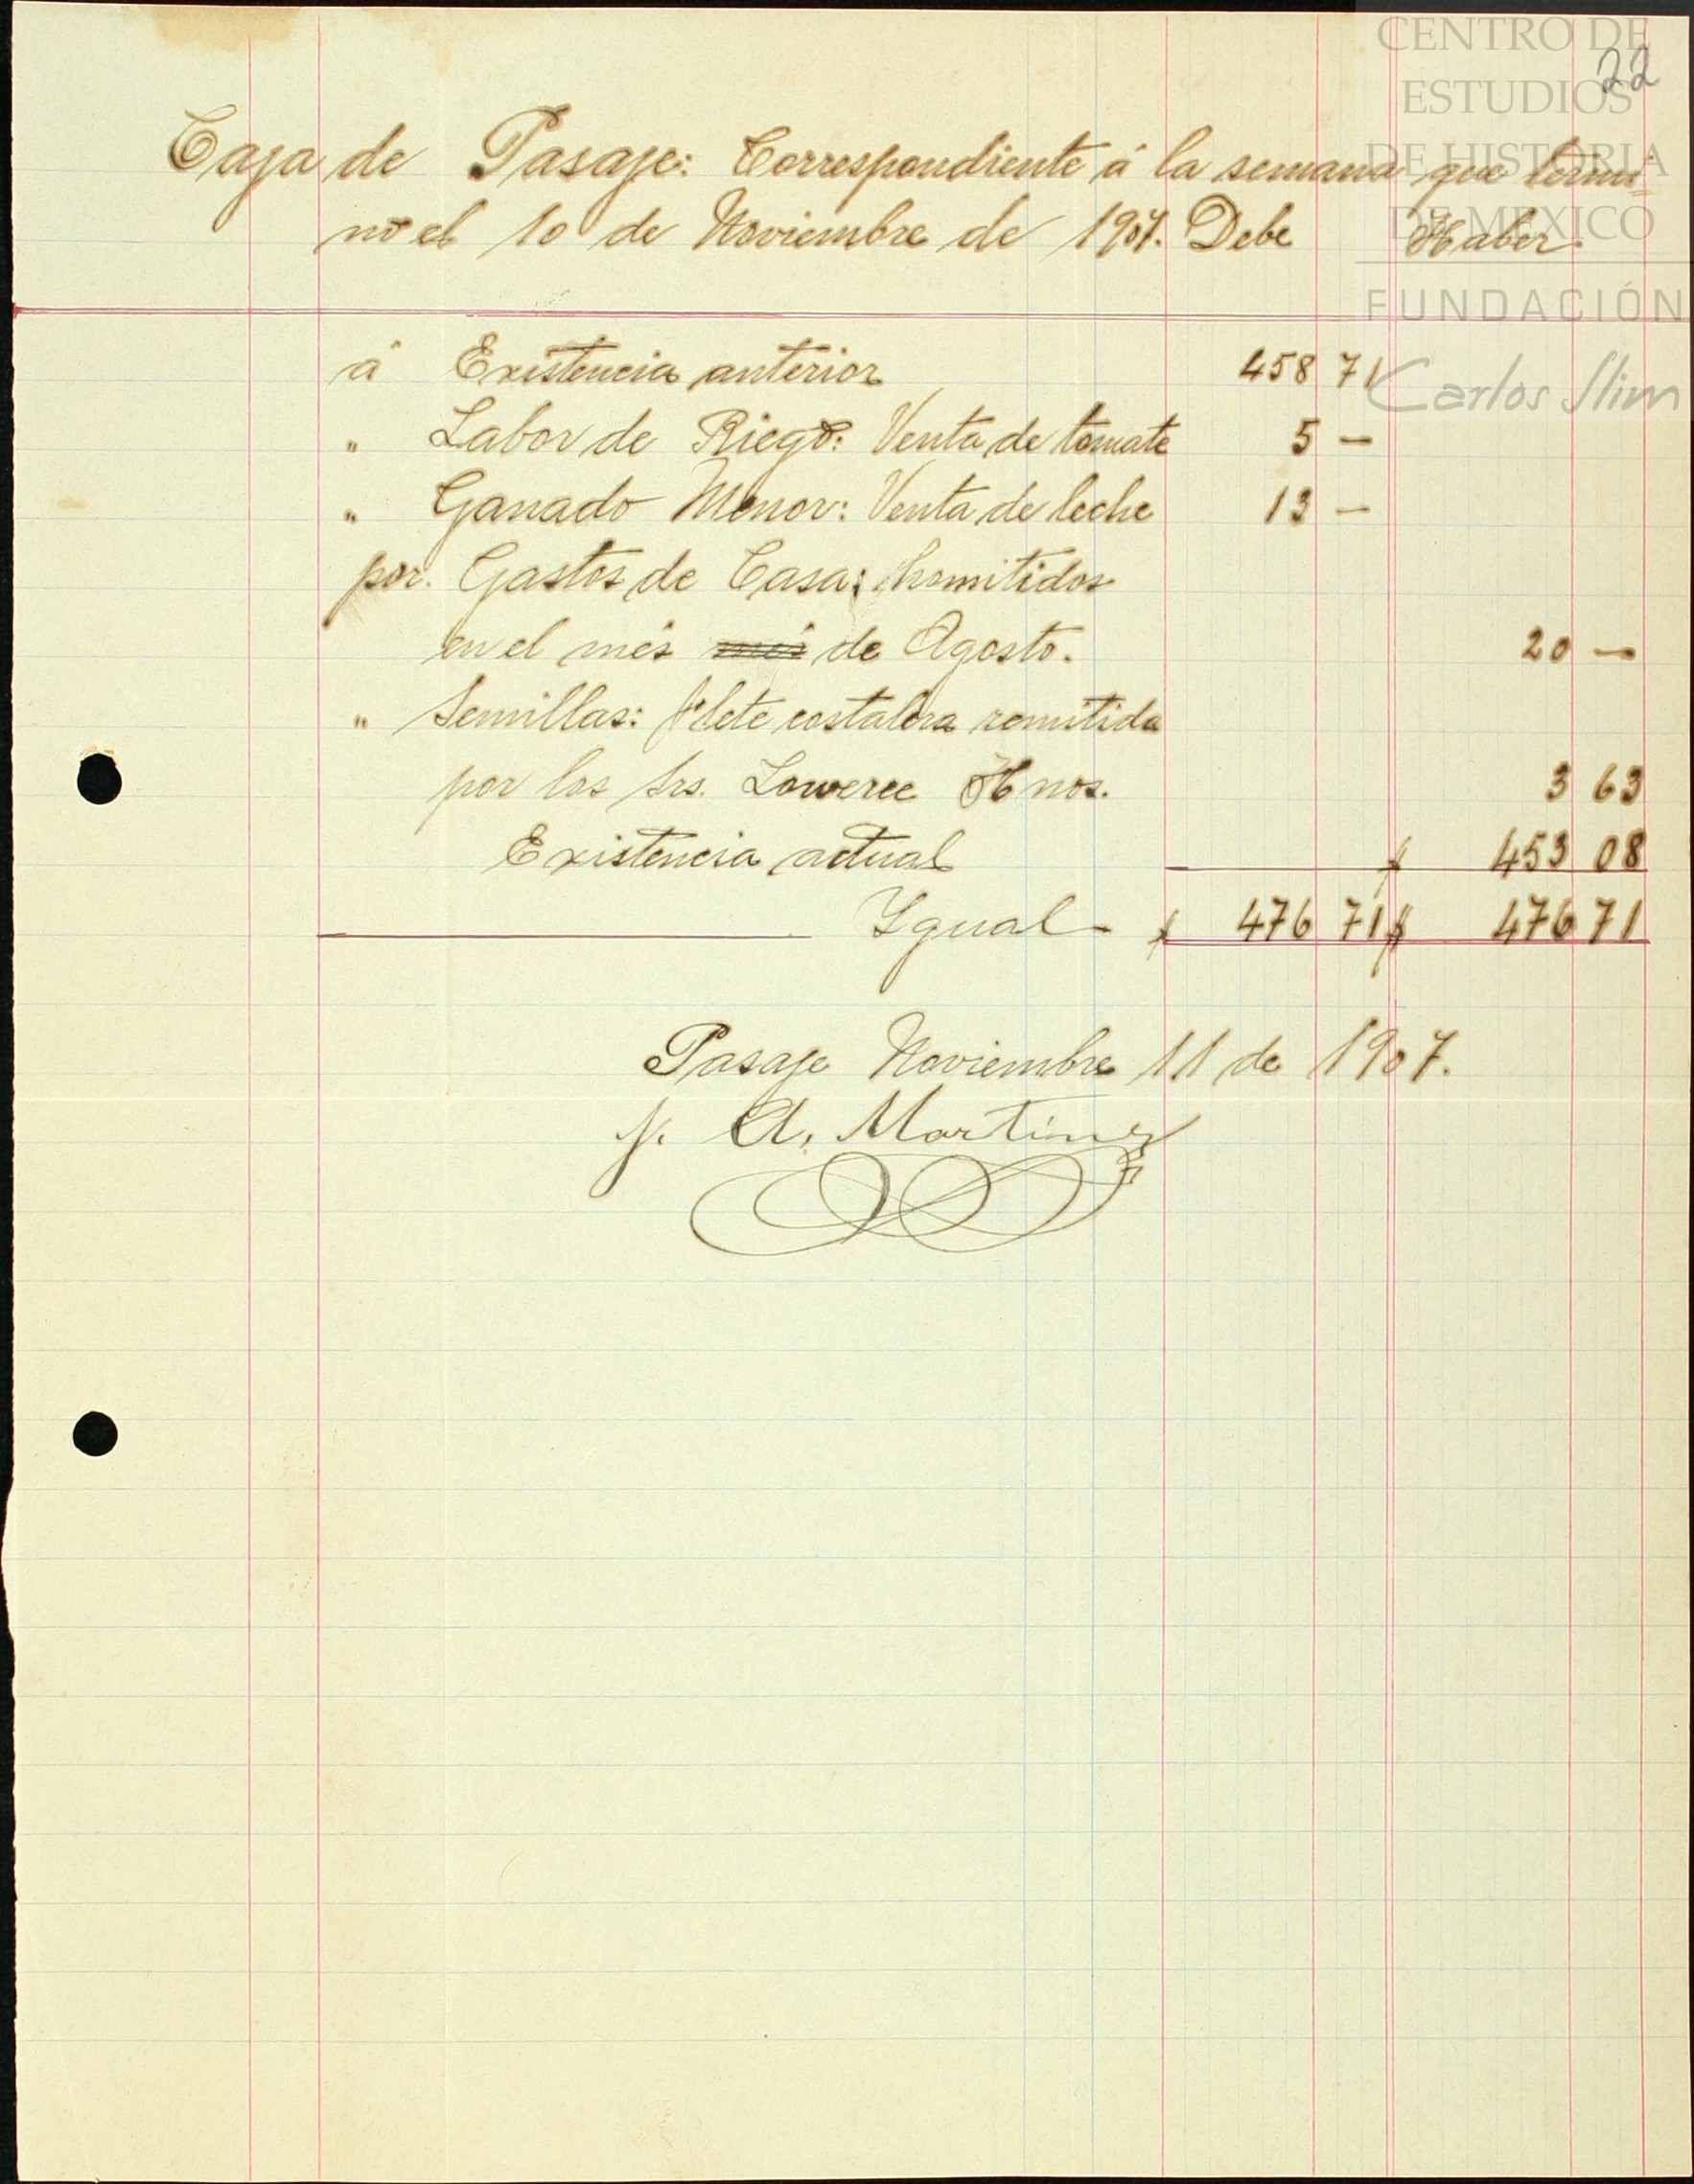 CENTRO DE
ESTUDIOS
DE HISTORIA
DE MEXICO
FUNDACIÓN
Carlos Slim
22
Caja de Pasaje: Correspondiente á la semana que termi-
no el 10 de Noviembre de 1907. Debe Haber.
á Existencia anterior 458 71
" Labor de Riego: Venta de tomate 5 —
" Ganado Menor: Venta de leche 13 —
por. Gastos de Casa:
en el més més de Agosto. 20 —
" Semillas: flete costalera remitida
por los Srs. Loweree Hnos. 3 63
Existencia actual $ 453 08
Ygual - $ 476 71 $ 476 71
Pasaje Noviembre 11 de 1907.
A. Martinez